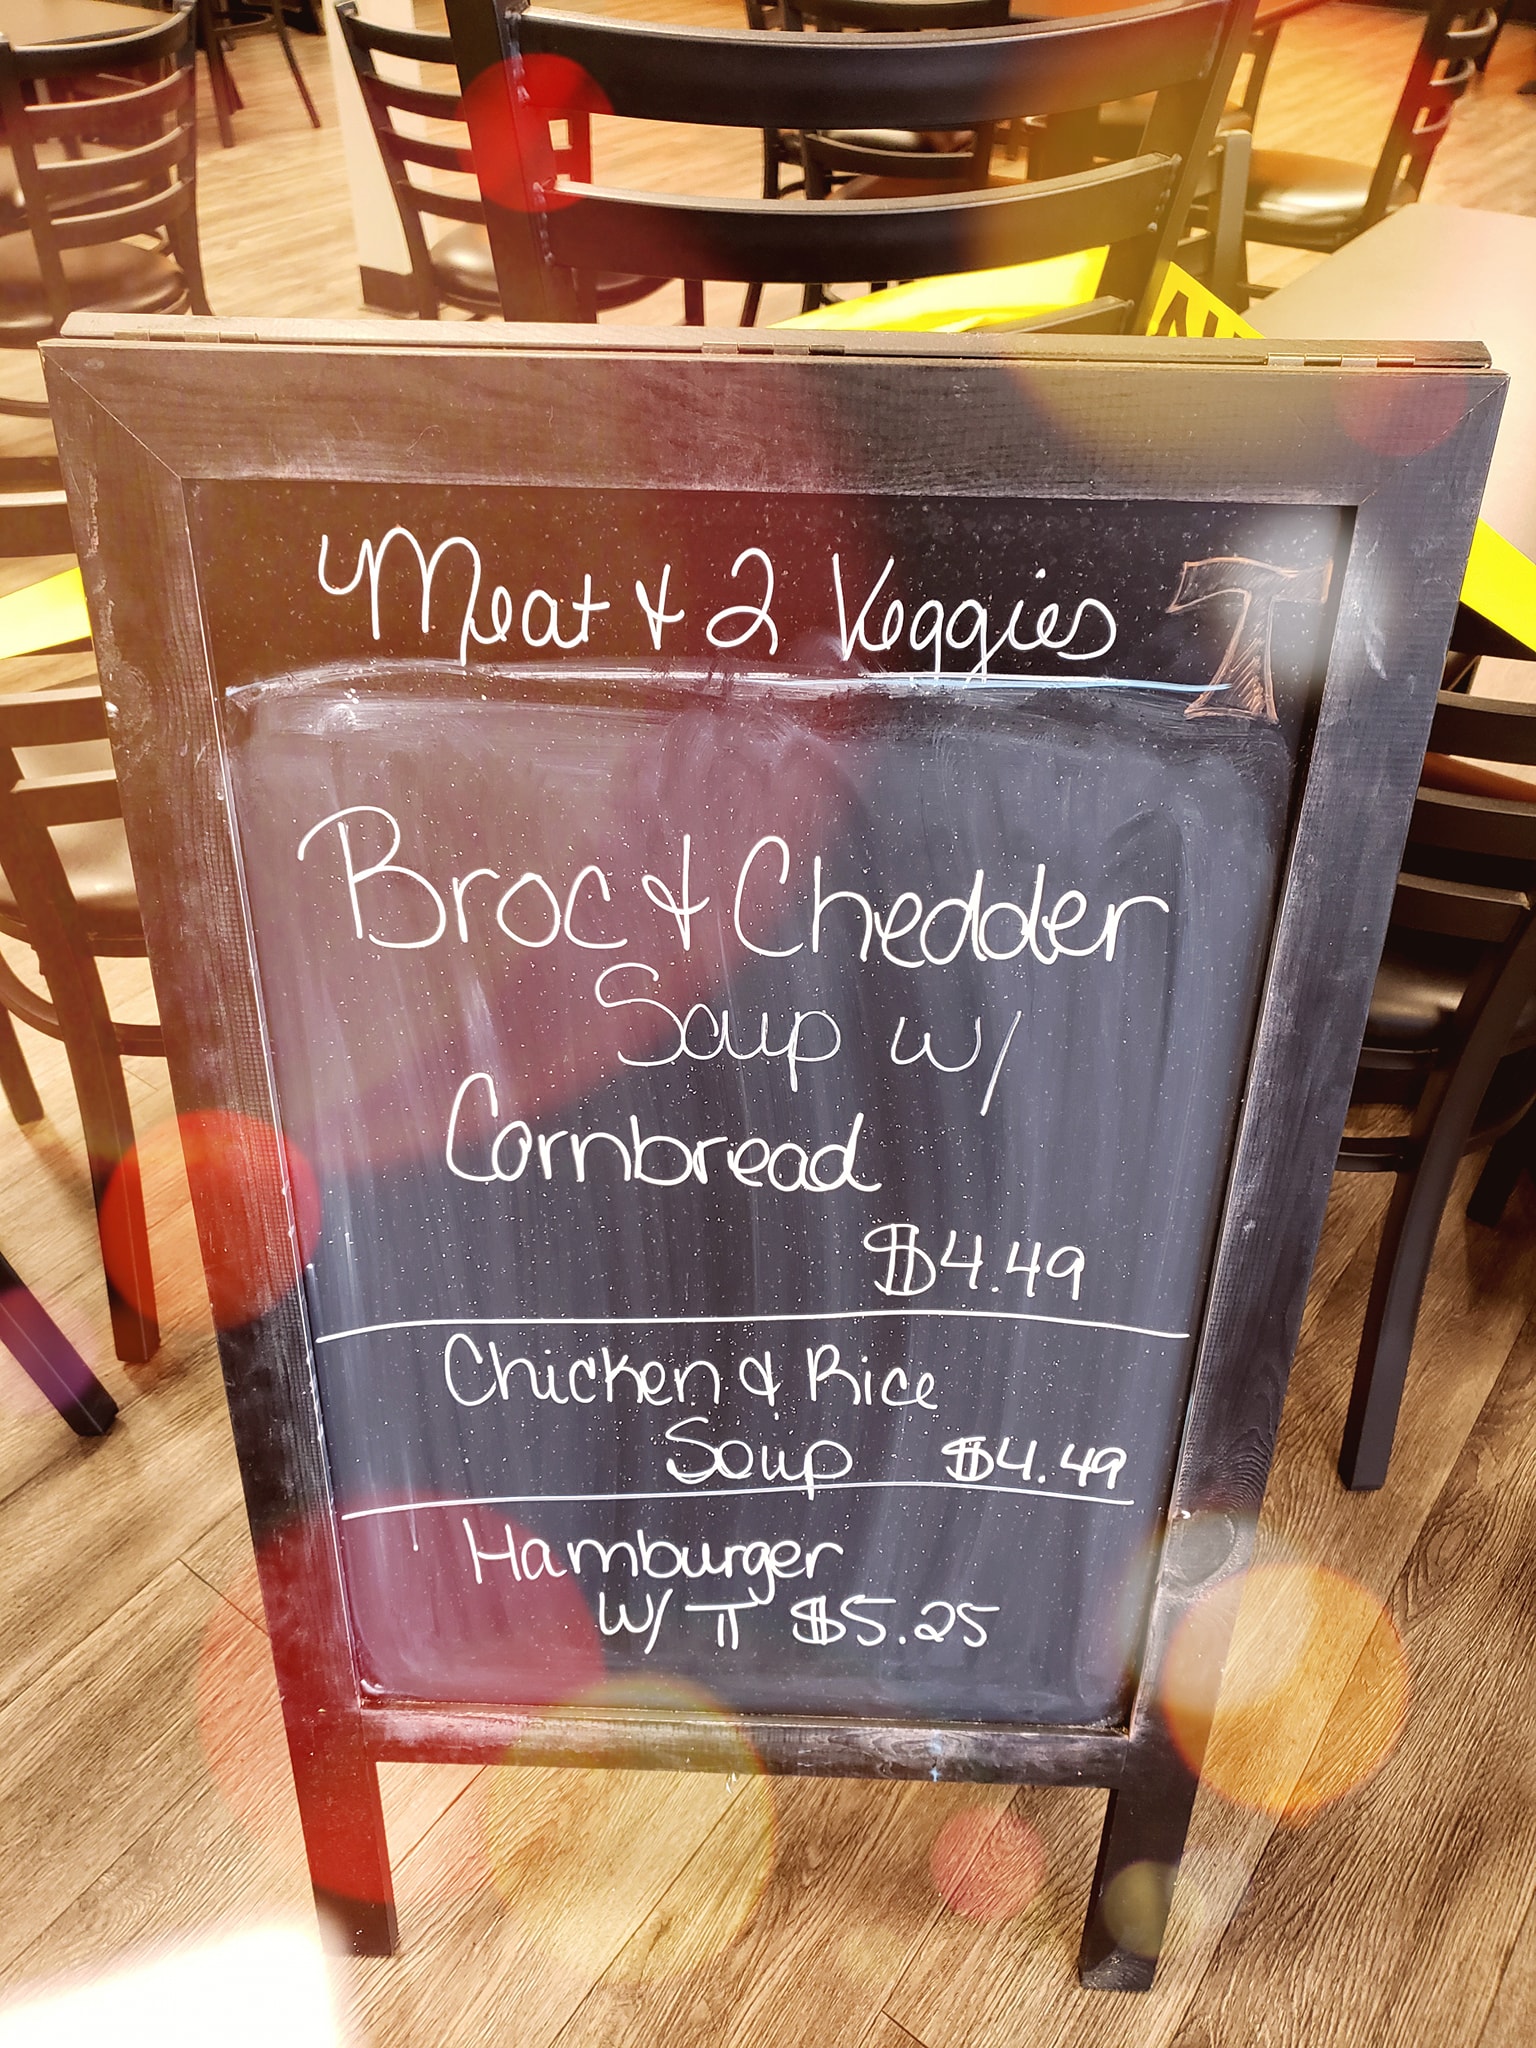 Meat & 2 Veggies T
Broc & Chedder
Soup w/
Cornbread
$4.49
Chicken & Rice
Soup $4.49
Hamburger
W/ TT $5.25